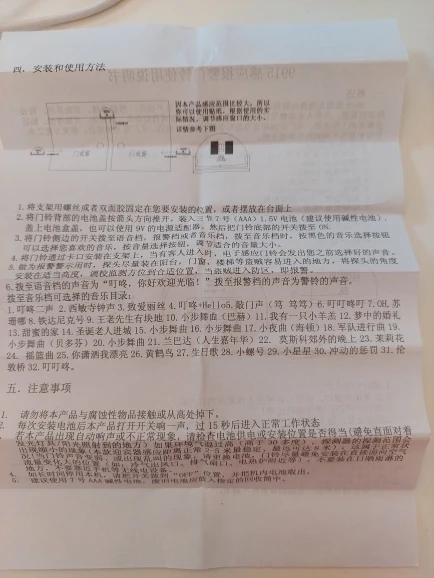 四、安装和使用方法
因本产品感应范围比较大，所以
你可以使用贴纸，根据使用的实
际情况，调节感应窗口的大小。
详情参考下图
1.将支架用螺丝或者双面胶固定在您要安装的位置，或者摆放在台面上
2.将门铃背部的电池盖按箭头方向推开，装入三节7号（AAA）1.5V电池（建议使用碱性电池），
盖上电池盒盖，也可以使用9V的电源适配器。然后把门铃底部的开关拨至ON.
3.将门铃侧边的开关拨至语音档，报警档或者音乐档，拨至音乐档时，按黑色的音乐选择按钮
可以选择您喜欢的音乐，按音量选择按钮，调节适合的音量大小。
4.将门铃通过卡口安装在支架上，当有客人进入时，电子感应门铃会发出您之前选择好的声音。
5.做为报警警示用时，探头尽量装在阳台，门窗，楼梯等盗贼容易进入的地方，将探头的角度
安装在适当高度，调校监测方位到合适位置，当盗贼进入防区，即报警。
6.拨至语音档的声音为“叮咚，你好欢迎光临！”拨至报警档的声音为警铃的声音。
拨至音乐档可选择的音乐目录：
1.叮咚二声 2.西敏寺钟声 3.致爱丽丝 4.叮咚+Hello 5.敲门声（笃 笃笃）6.叮叮咚叮 7.OH,苏
珊哪 8.铁达尼克号 9.王老先生有块地 10.小步舞曲（巴赫）11.我有一只小羊羔 12.梦中的婚礼
13.甜蜜的家 14.圣诞老人进城 15.小步舞曲 16.小步舞曲 17.小夜曲（海顿）18.军队进行曲 19.
小步舞曲（贝多芬）20.小步舞曲 21.兰巴达（人生嘉年华）22. 莫斯科郊外的晚上 23.茉莉花
24. 摇篮曲 25.你潇洒我漂亮 26.黄鹤鸟 27.生日歌 28.小螺号 29.小星星 30.冲动的惩罚 31.伦
敦桥 32.叮叮咚。
五、注意事项
1. 请勿将本产品与腐蚀性物品接触或从高处掉下。
2. 每次安装电池后本产品打开开关响一声，过15秒后进入正常工作状态
3. 若本产品出现自动响声或不正常现象，请检查电池供电或安装位置是否得当（避免直面对着
4. 如长时间停用本机，请把开关拨到“OFF”位置，并把机内电池取出。
5. 建议使用7号AAA碱性电池，废旧电池应放入指定的回收筒中。